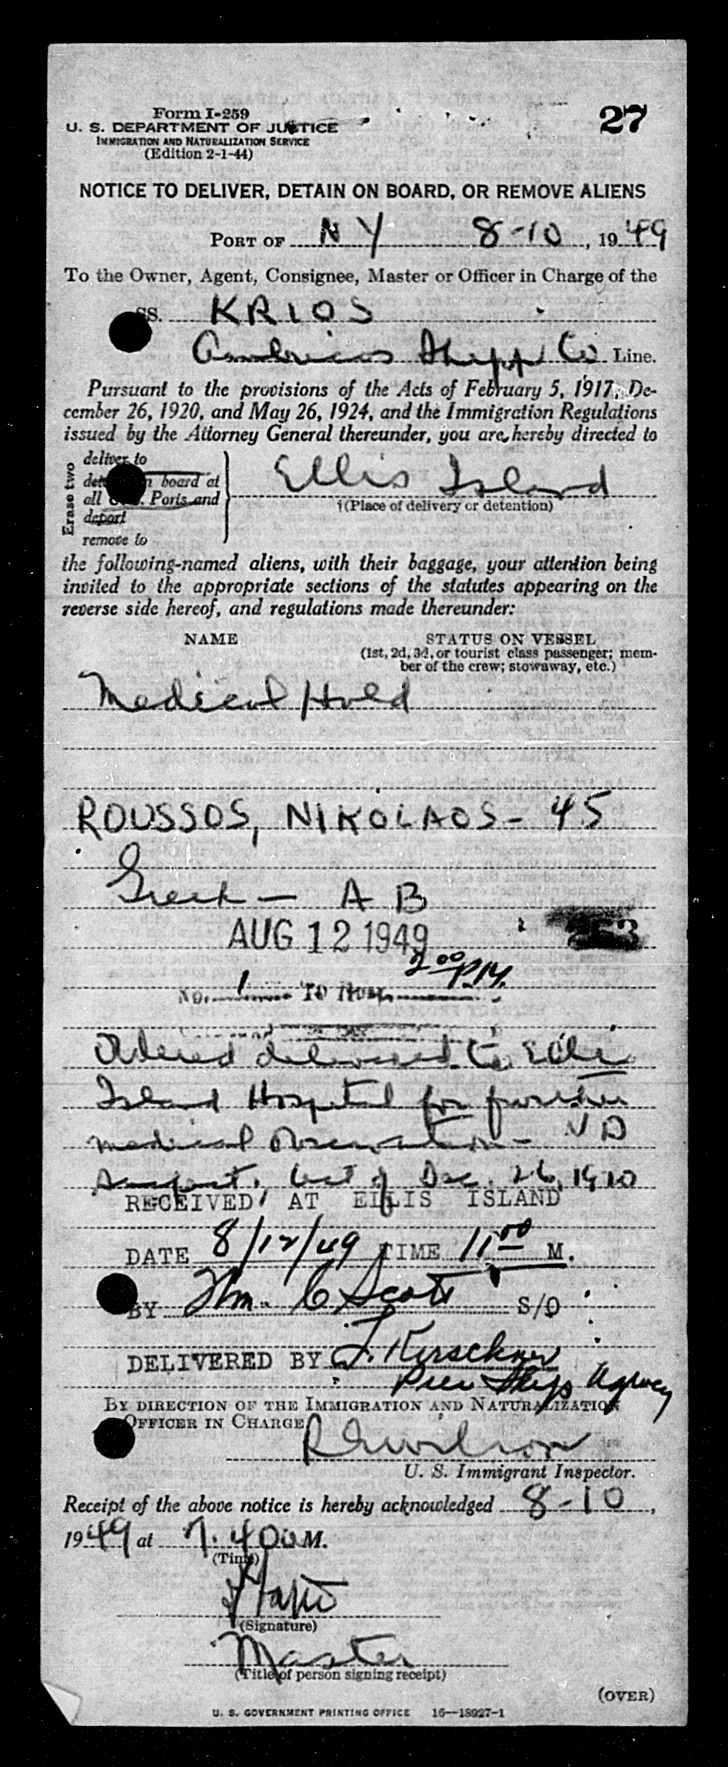 Form I-259
27
U. S. DEPARTMENT OF JUSTICE
IMMIGRATION AND NATURALIZATION SERVICE
(Edition 2-1-44)
NOTICE TO DELIVER, DETAIN ON BOARD, OR REMOVE ALIENS
PORT OF NY 8-10, 1949
To the Owner, Agent, Consignee, Master or Officer in Charge of the
SS. KRIOS
Shipp Co Line.
Pursuant to the provisions of the Acts of February 5, 1917, De-
cember 26, 1920, and May 26, 1924, and the Immigration Regulations
issued by the Attorney General thereunder, you are hereby directed to
Erase two
deliver to
board at
all Ports and
deport
remove to
Ellis Island
†(Place of delivery or detention)
the following-named aliens, with their baggage, your attention being
invited to the appropriate sections of the statutes appearing on the
reverse side hereof, and regulations made thereunder:
NAME STATUS ON VESSEL
(1st, 2d, 3d, or tourist class passenger; mem-
ber of the crew; stowaway, etc.)
Medical Hold
ROUSSOS, NIKOLAOS - 45
Greek - A B
AUG 12 1949
2 00 P.M.
No. 1 TO
Ordered delivered to Ellis
Island Hospital for further
medical observation - VD
Suspect. Act of Dec. 26, 1920
RECEIVED AT ELLIS ISLAND
DATE 8/12/49 TIME 11 00 M.
BY Wm. C Scott S/O
DELIVERED BY J. Kirschner
Pier Agency
BY DIRECTION OF THE IMMIGRATION AND NATURALIZATION
OFFICER IN CHARGE
R G Wilson
U. S. Immigrant Inspector.
Receipt of the above notice is hereby acknowledged 8-10,
1949 at 7.40 M.
(Time)
(Signature)
Master
(Title of person signing receipt)
(OVER)
U. S. GOVERNMENT PRINTING OFFICE 16—18927-1